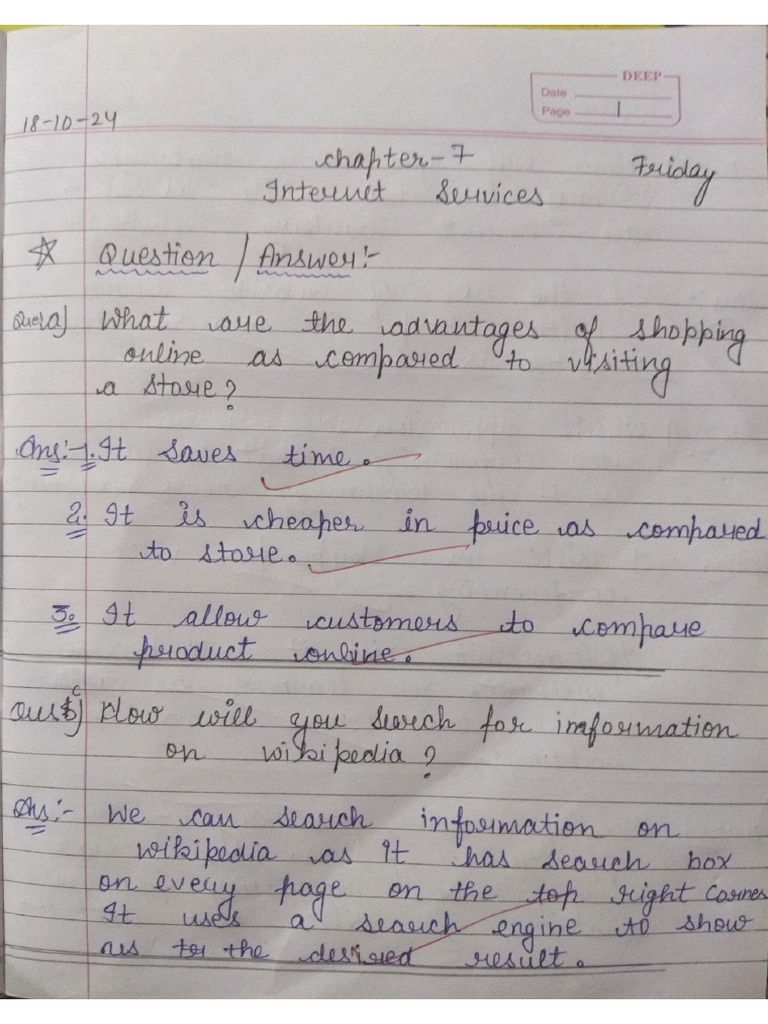 DEEP
Date
Page 1
18-10-24
Chapter-7 Friday
Internet Services
☆ Question / Answer:-
Ques a) What are the advantages of shopping
online as compared to visiting
a store?
Ans:-1. It saves time.
2. It is cheaper in price as compared
to store.
3. It allow customers to compare
product online.
Ques c) How will you search for information
on wikipedia?
Ans:- We can search information on
wikipedia as it has search box
on every page on the top right corner
It uses a search engine to show
us the desired result.